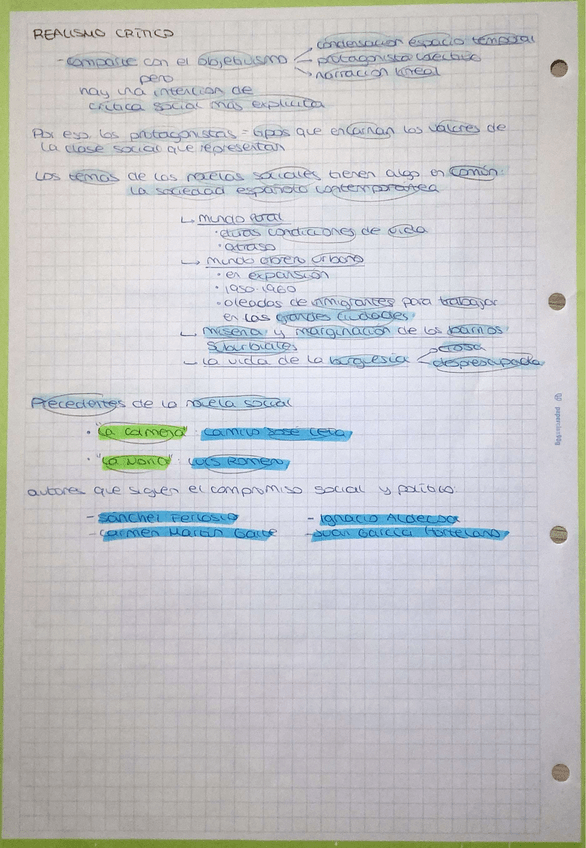 REALISMO CRÍTICO
- comparte con el objetivismo → condensación espacio temporal
→ protagonista colectivo
→ narración lineal
pero
hay una intención de
crítica social más explícita
Por eso, los protagonistas = tipos que encarnan los valores de
la clase social que representan
Los temas de las novelas sociales tienen algo en común:
la sociedad española contemporánea
↳ mundo rural
· duras condiciones de vida
· atraso
→ mundo obrero urbano
· en expansión
· 1950-1960
· oleadas de inmigrantes para trabajar
en las grandes ciudades
↳ miseria y marginación de los barrios
suburbiales
↳ la vida de la burguesía ociosa
despreocupada
Precedentes de la novela social
· "La colmena" Camilo José Cela
· "La Noria" Luis Romero
autores que siguen el compromiso social y político
- Sánchez Ferlosio - Ignacio Aldecoa
- Carmen Martín Gaite - Juan García Hortelano